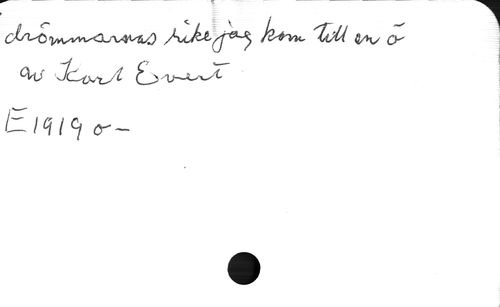 drömmarnas rike jag kom till en ö
av Karl Evert
E 1919 o –